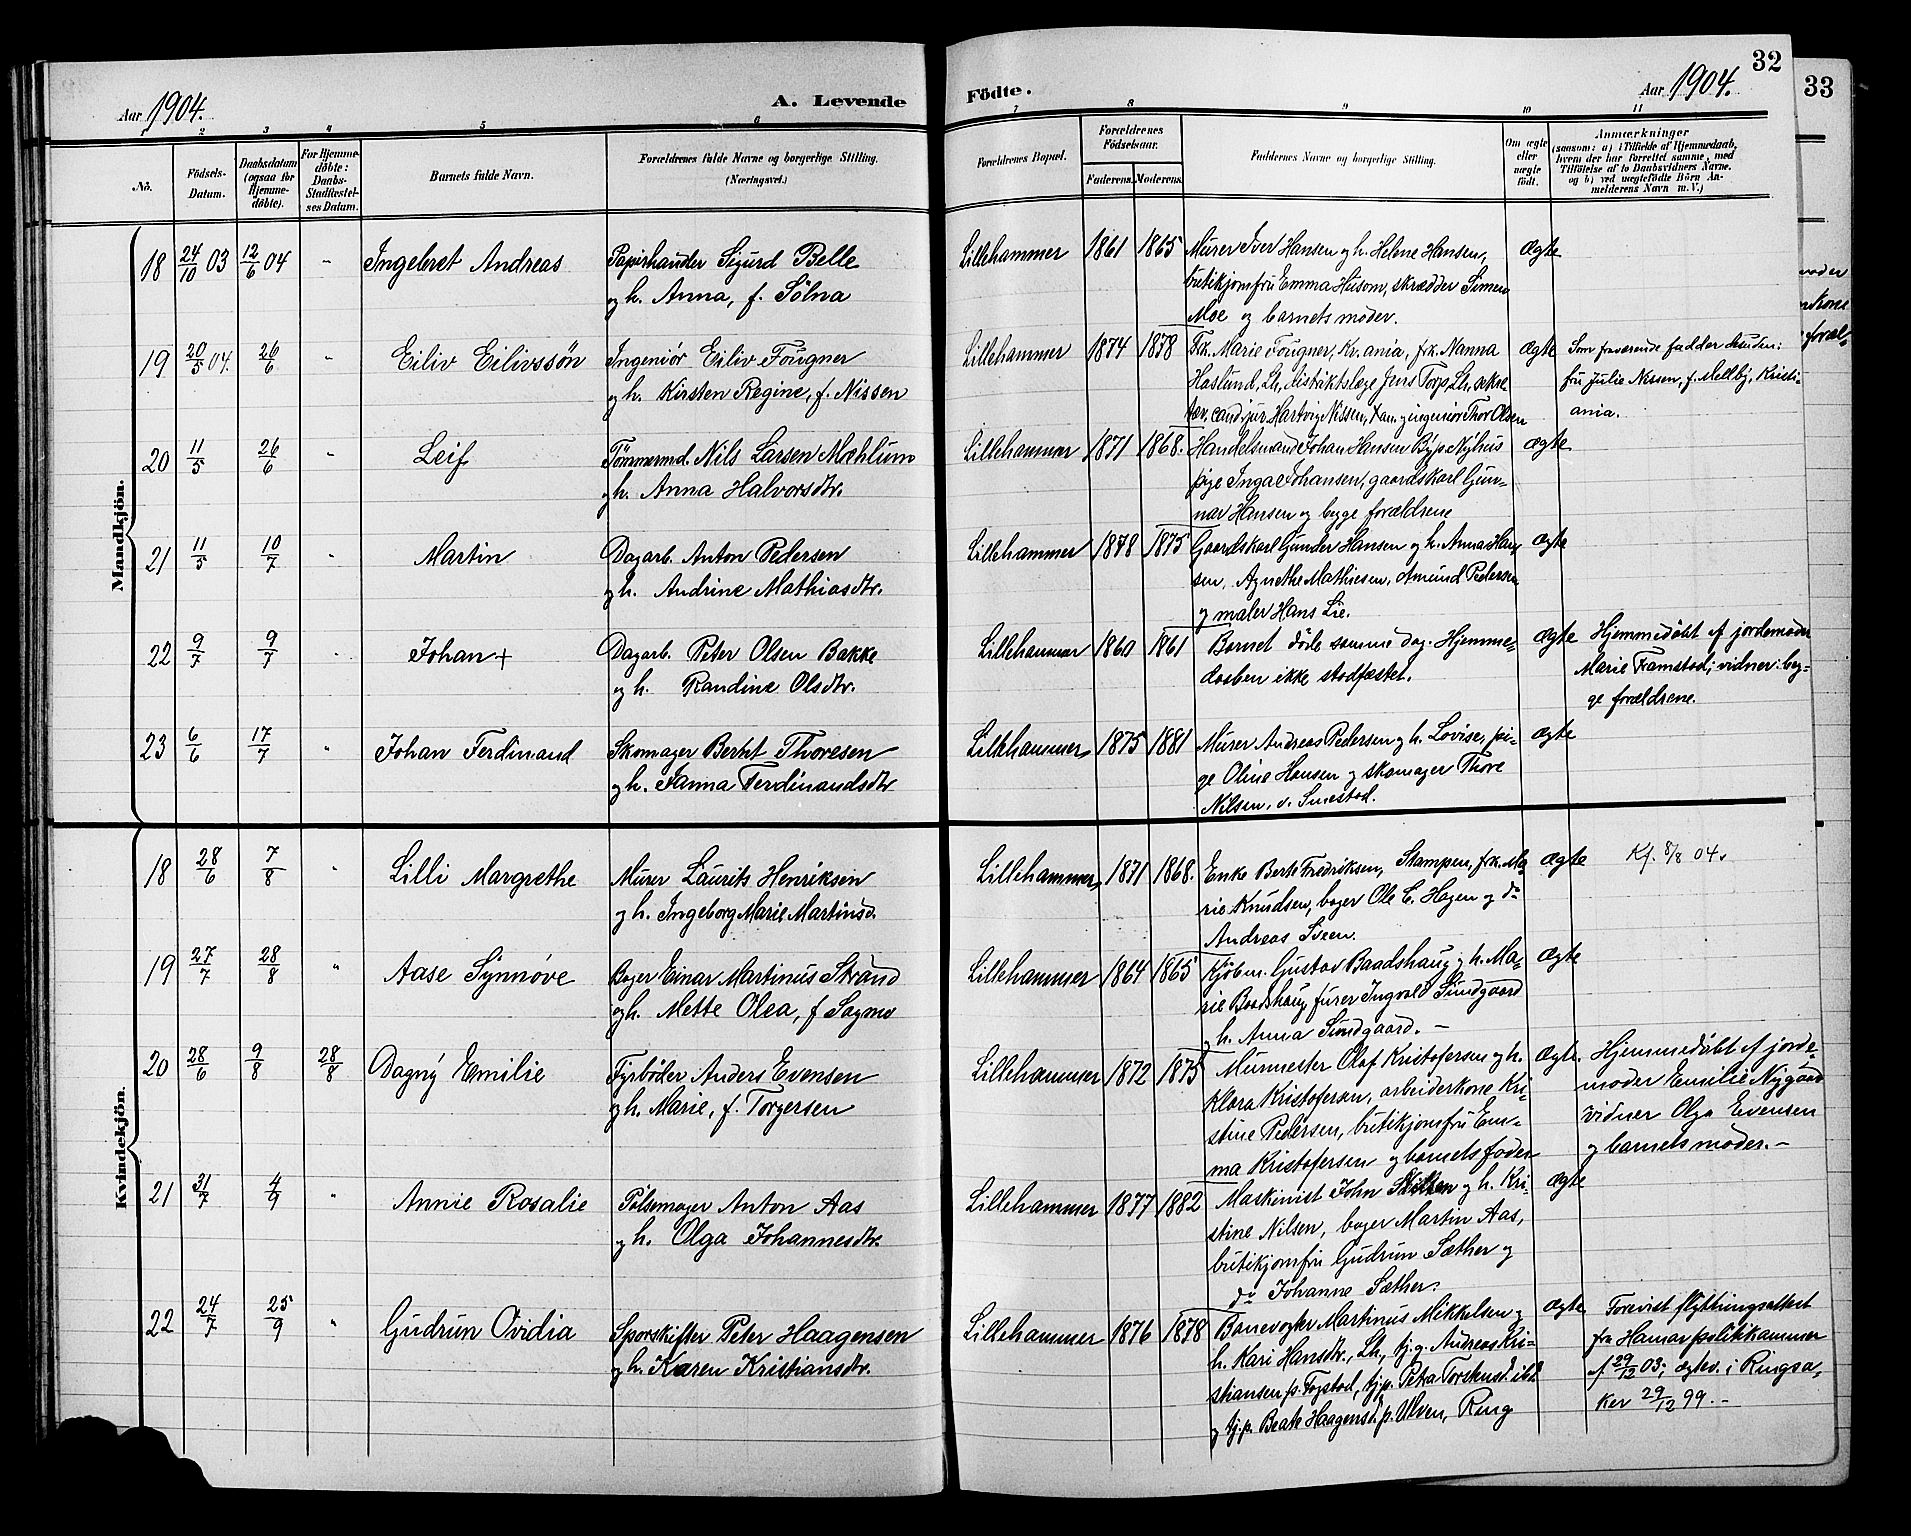 Aar 1904. A. Levende Födte. Aar 1904. 32
33
1 2 3 4 5 6 7 8 9 10 11
No.
Födsels-Datum.
Daabsdatum (ogsaa for Hjemme-döbte).
For Hjemme-döbte: Daabs-Stadfæstel-ses Datum.
Barnets fulde Navn.
Forældrenes fulde Navne og borgerlige Stilling. (Næringsvei.)
Forældrenes Bopæl.
Forældrenes Födselsaar.
Faderens. Moderens.
Faddernes Navne og borgerlige Stilling.
Om ægte eller uægte födt.
Anmærkninger
(saasom: a) i Tilfælde af Hjemmedaab,
hvem der har forrettet samme, med
Tilföielse af to Daabsvidners Navne,
og b) ved uægtefödte Börn An-
melderens Navn m. V.)
Mandkjön.
18 24/10 03 12/6 04 - Ingebret Andreas Papirhandler Sigurd Belle
og h. Anna, f. Sölna
Lillehammer 1861 1865 Murer Iver Hansen og h. Helene Hansen, ægte
butikjomfru Emma Husom, skrædder Simen
Moe og barnets moder.
19 20/5 04. 26/6 " Eiliv Eilivssön Ingeniör Eiliv Fougner
og h. Kirsten Regine, f. Nissen
Lillehammer 1874 1878 Frk. Marie Fougner, Kr.ania, frk. Nanna ægte
Haslund, Lh, distriktslæge Jens Torp, Lh, sekre
tær, cand. jur. Hartvig Nissen, Xan. og ingeniör Thor Olsen
Som fraværende fadder desuden:
fru Julie Nissen, f. Mellbÿ, Kristi-
ania.
20 11/5 26/6 " Leif Tömmermd. Nils Larsen Mæhlum
og h. Anna Halvorsdtr.
Lillehammer 1871 1868. Handelsmand Johan Hansen Bÿ p. Nÿhus ægte
pige Inga Johansen, gaardskarl Gun-
nar Hansen og begge forældrene
21 11/5 10/7 " Martin Dagarb. Anton Pedersen
og h. Andrine Mathiasdtr.
Lillehammer 1878 1875 Gaardskarl Gunder Hansen og h. Anna Han ægte
sen, Agnethe Mathiesen, Amund Pedersen
og maler Hans Lie.
22 9/7 9/7 " Johan + Dagarb. Peter Olsen Bakke
og h. Randine Olsdtr.
Lillehammer 1860 1861 Barnet döde samme dag. Hjemme- ægte
daaben ikke stadfæstet.
Hjemmedöbt af jordemoder
Marie Framstad; vidner: beg-
ge forældrene.
23 6/6 17/7 " Johan Ferdinand Skomager Bernt Thoresen
og h. Janna Ferdinandsdtr
Lillehammer 1875 1881 Murer Andreas Pedersen og h. Lovise, pi- ægte
ge Oline Hansen og skomager Thore
Nilsen, v. Smestad.
Kvindekjön.
18 28/6 7/8 " Lilli Margrethe Murer Laurits Henriksen
og h. Ingeborg Marie Martinsd.
Lillehammer 1871 1868. Enke Berte Fredriksen, Stampen, frk. Ma- ægte
rie Knudsen, bager Ole C. Hagen og do
Andreas Sveen.
Kf. 8/8 04.
19 27/7 28/8 " Aase Synnöve Bager Einar Martinus Strand
og h. Mette Olea, f. Sagmo
Lillehammer 1864 1865 Kjöbm. Gustav Baadshaug og h. Ma- ægte
rie Baadshaug, furer Ingvald Sundgaard
og h. Anna Sundgaard. -
20 28/6 9/8 28/8 Dagnÿ Emilie Fyrböder Anders Evensen
og h. Marie, f. Torgersen
Lillehammer 1872 1875 Murmester Olaf Kristofersen og h. ægte.
Klara Kristofersen, arbeiderkone Kri-
stine Pedersen, butikjomfru Em-
ma Kristofersen og barnets fader
Hjemmedöbt af jorde-
moder Emilie Nygaard
vidner Olga Evensen
og barnets moder. -
21 31/7 4/9 " Annie Rosalie Pölsemager Anton Aas
og h. Olga Johannesdtr.
Lillehammer 1877 1882 Maskinist John Skilten og h. Kri- ægte
stine Nilsen, bager Martin Aas,
butikjomfru Gudrun Sæther og
do Johanne Sæther.
22 24/7 25/9 " Gudrun Ovidia Sporskifter Peter Haagensen
og h. Karen Kristiansdtr.
Lillehammer 1876 1878 Banevogter Martinus Mikkelsen og ægte
h. Kari Hansdtr., Lh., tj.g. Andreas Kri-
stiansen p. Fogstad, tj.p. Petra Torstensd. ibd
og tj.p. Beate Haagensd. p. Ulven, Ring
Forevist flytningsattest
fra Hamar politikammer
af 29/12 03; ægtev. i Ringsa-
ker 29/12 99. -